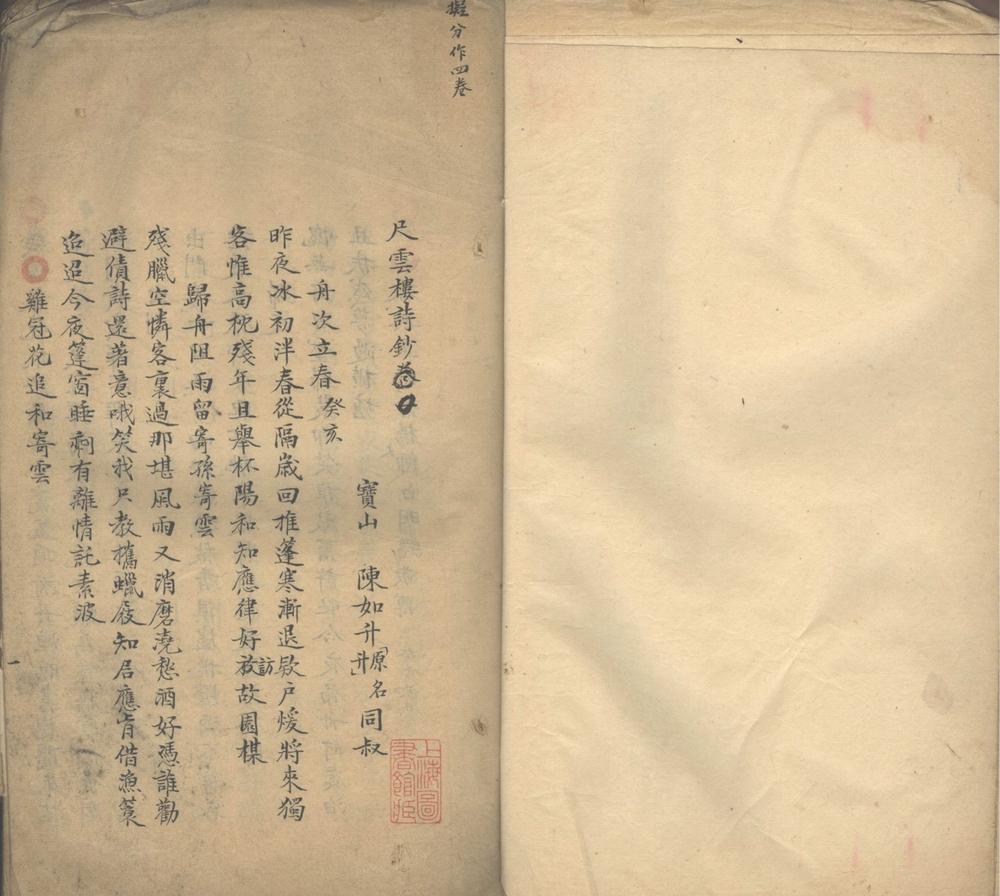 擬分作四卷
尺雲樓詩鈔卷
寶山 陳如升「原名升」同叔
舟次立春 癸亥
昨夜冰初泮春從隔歲回推蓬寒漸退欵户煖將來獨
客惟高枕殘年且舉杯陽和知應律好放訪故園梅
歸舟阻雨留寄孫寄雲
殘臘空憐客裏過那堪風雨又消磨澆愁酒好憑誰勸
避債詩還著意哦笑我只教攜蠟屐知君應肯借漁蓑
迢迢今夜篷窗睡剩有離情託素波
雞冠花追和寄雲
上海圖書館藏